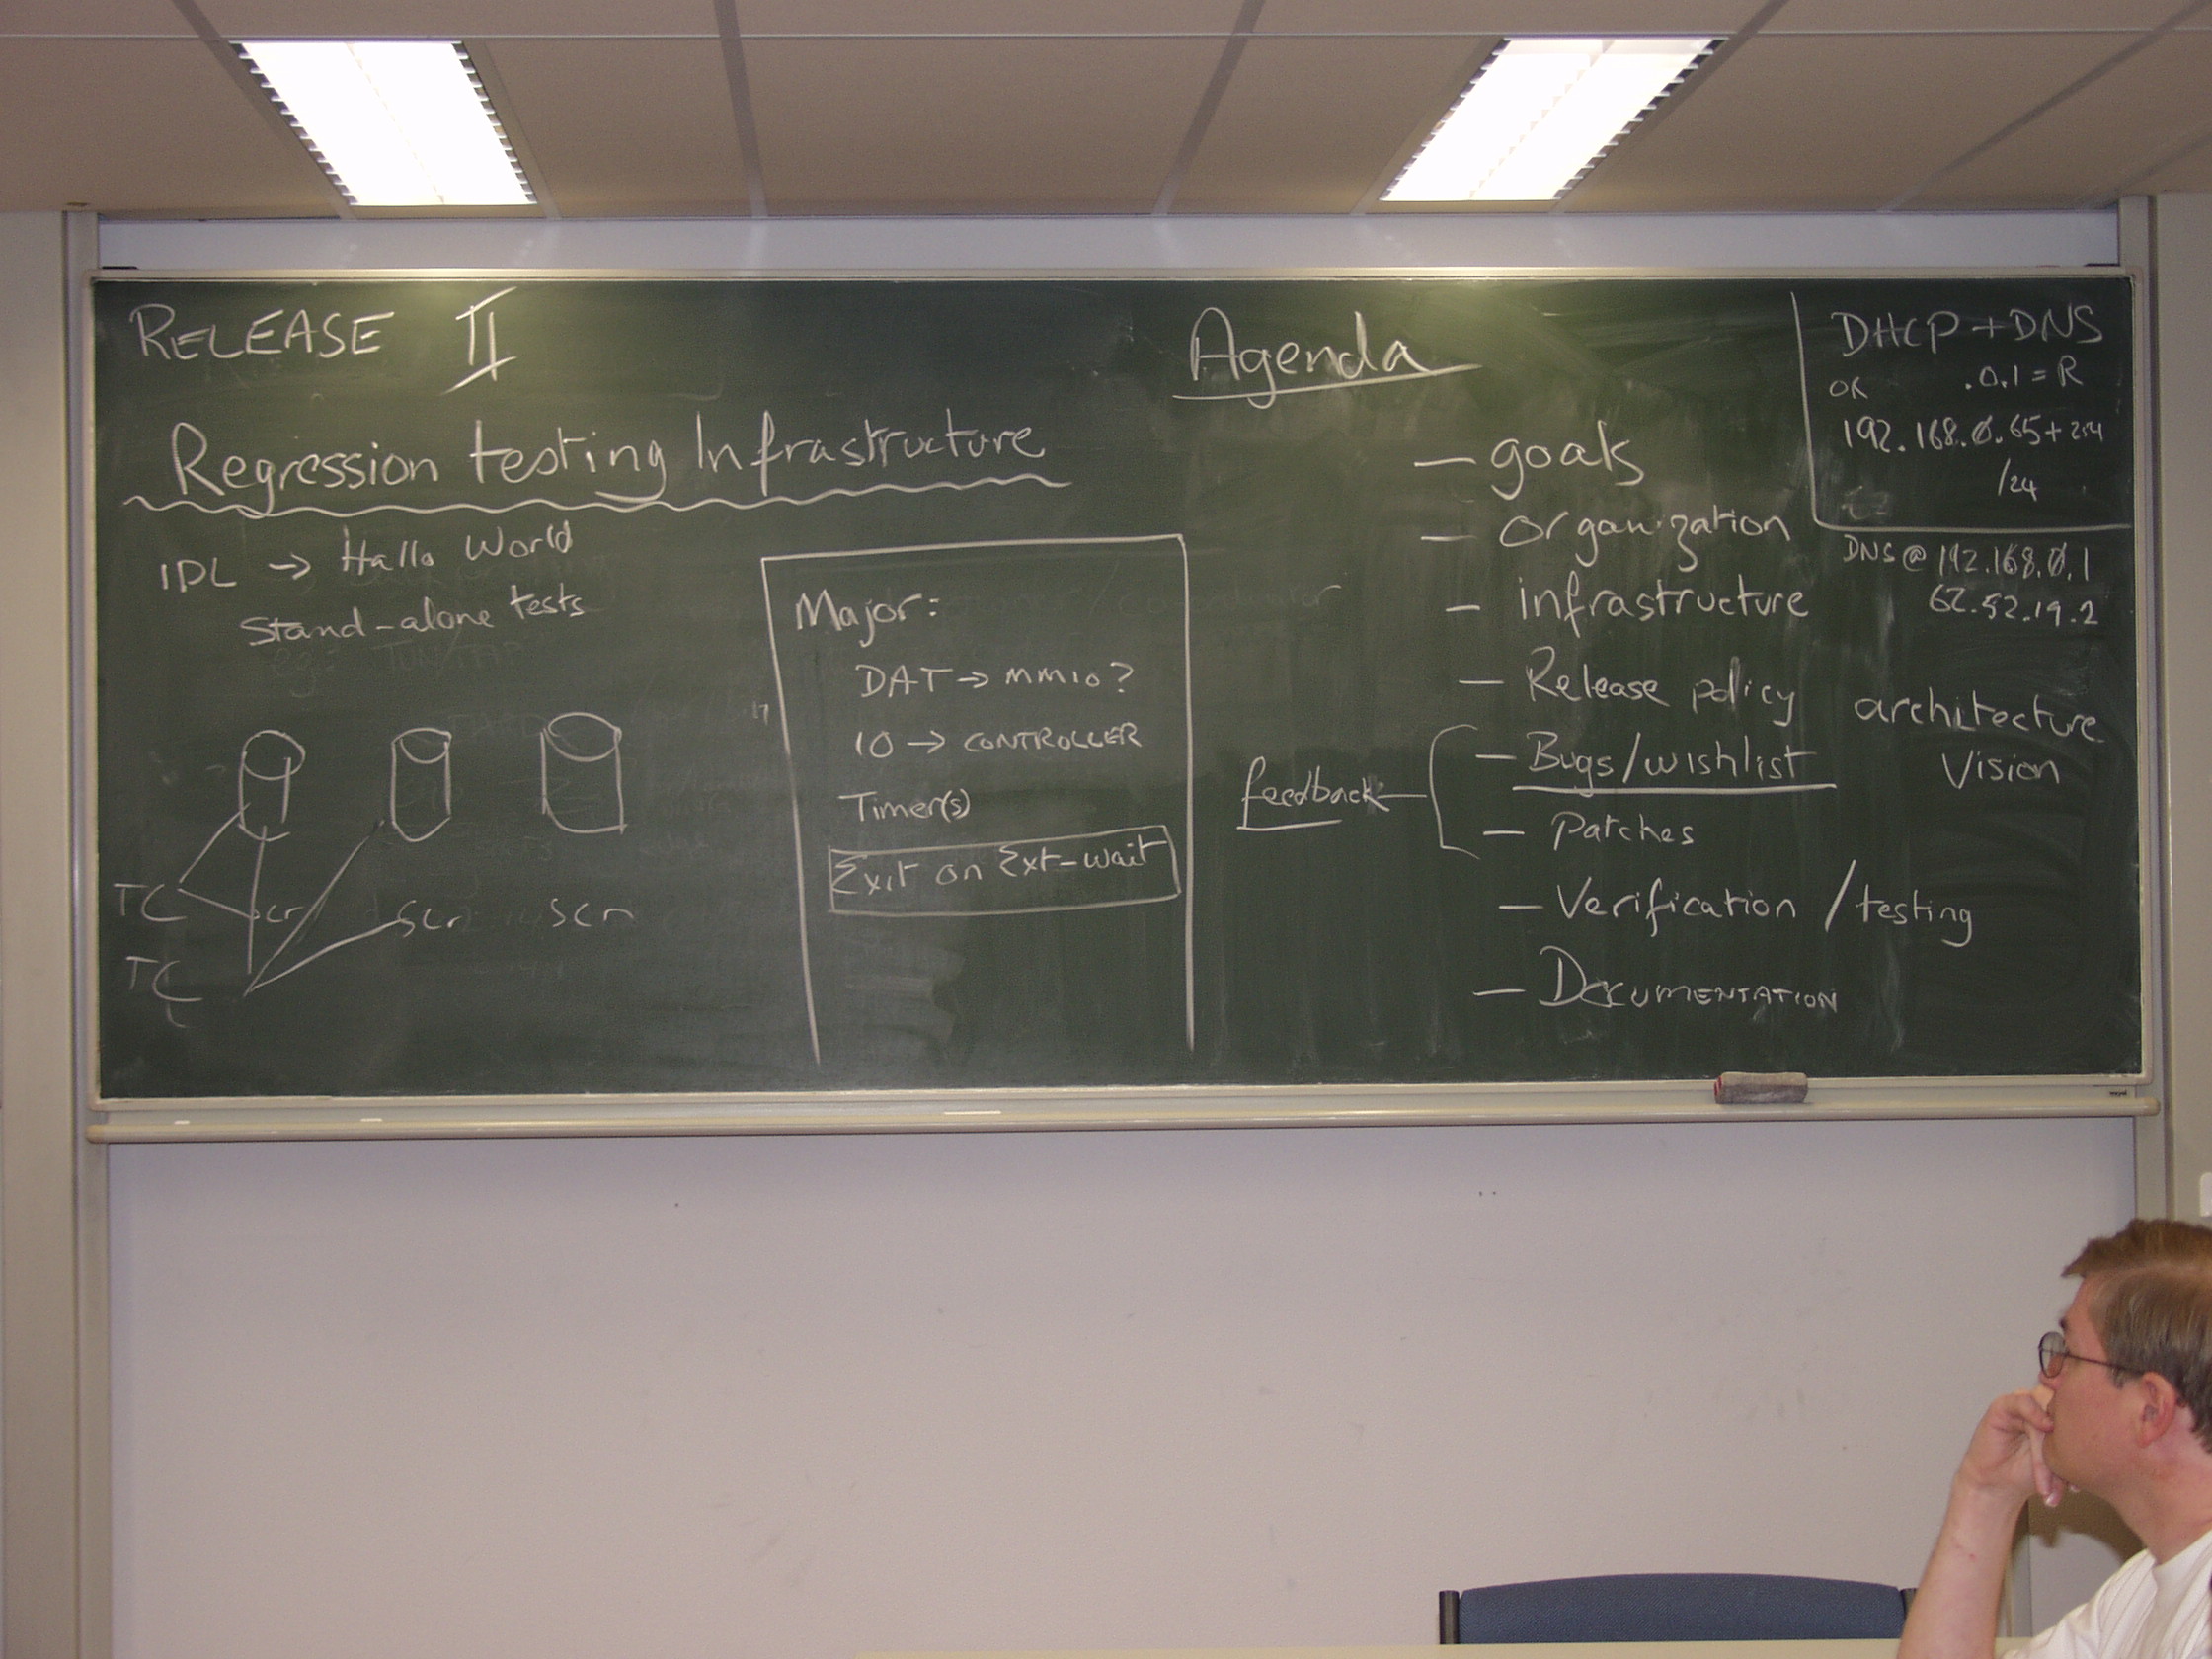 RELEASE II
Regression testing Infrastructure
IDL → Hallo World
Stand-alone tests
TC scr scr scr
TC
Major:
DAT → MMIO?
IO → CONTROLLER
Timer(s)
Exit on Ext-wait
Agenda
— goals
— organization
— infrastructure
— Release policy
feedback
— Bugs/wishlist
— Patches
— Verification / testing
— DOCUMENTATION
architecture
Vision
DHCP + DNS
OR .0.1 = R
192.168.0.65+254
/24
DNS @ 192.168.0.1
62.52.19.2